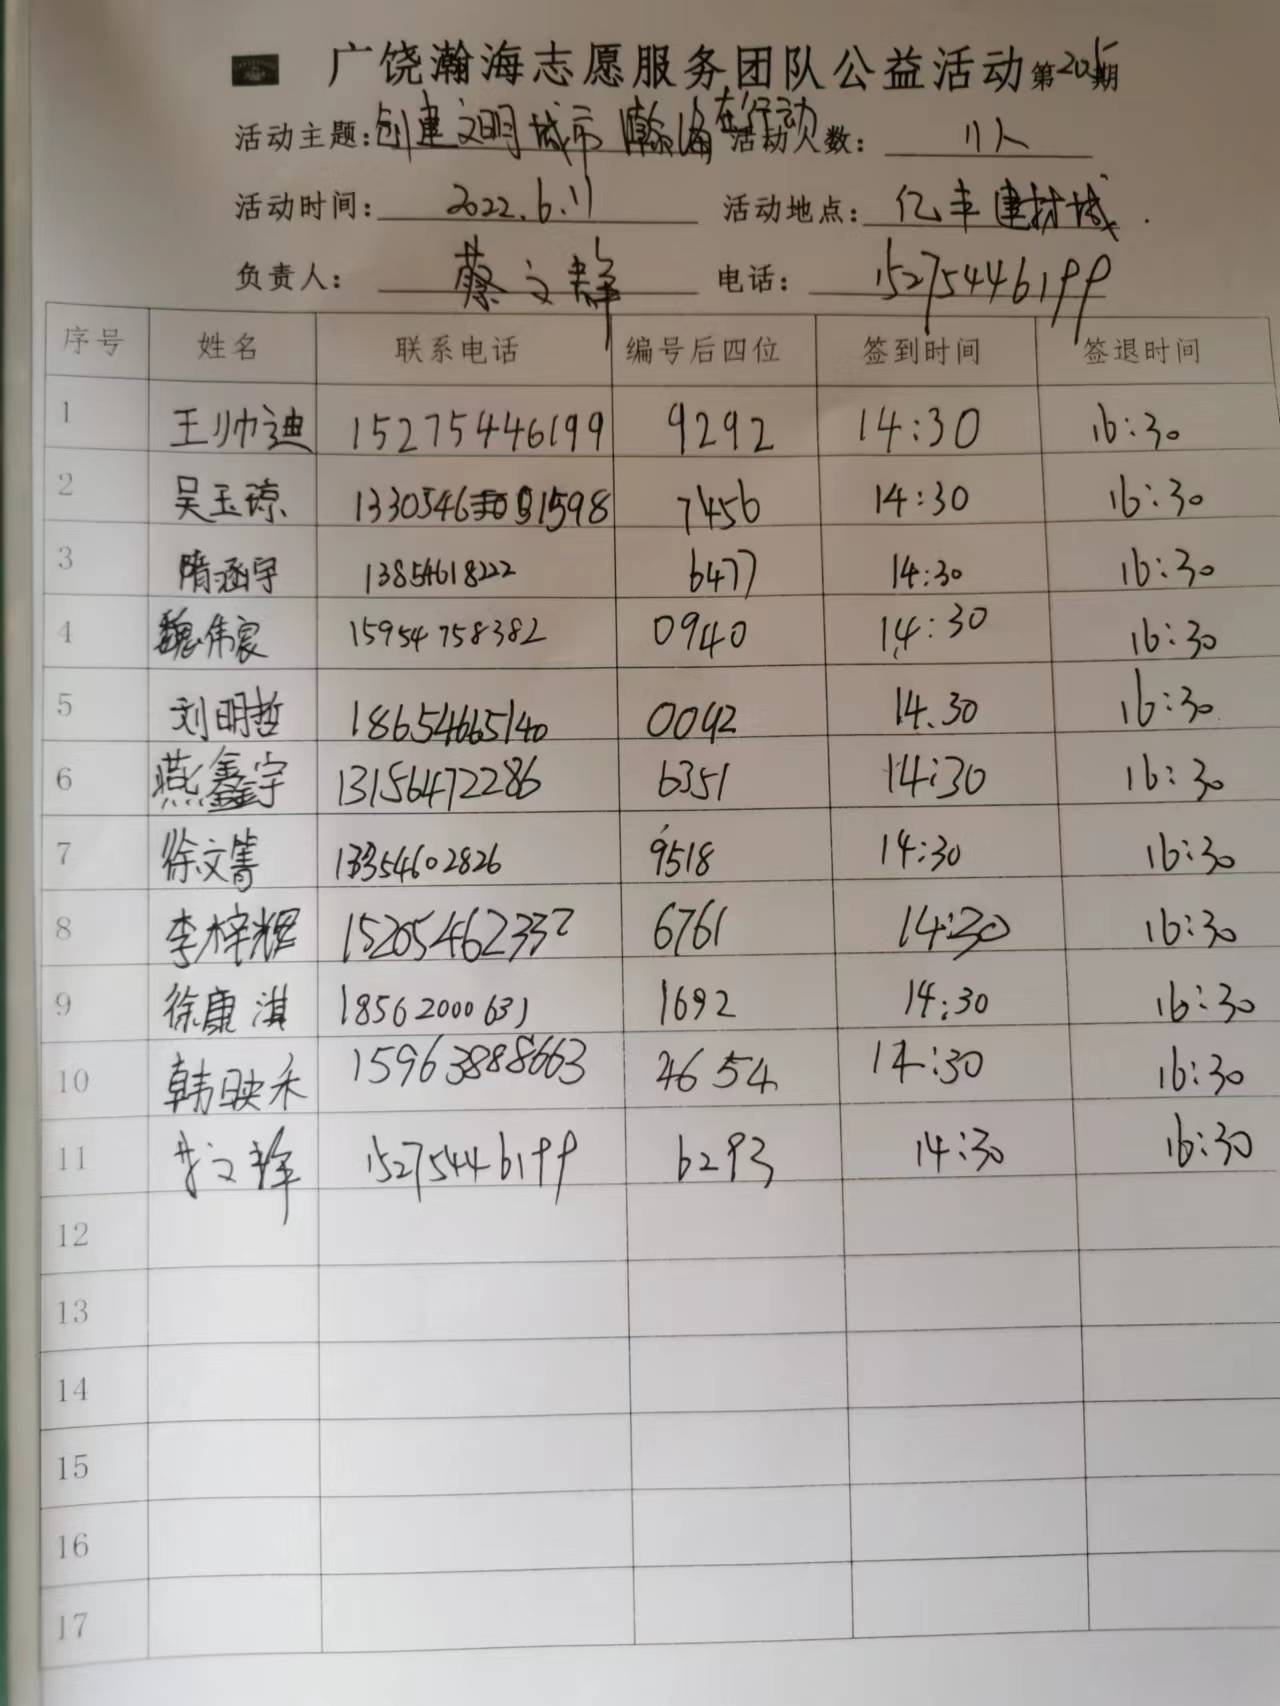 广饶瀚海志愿服务团队公益活动第205期
活动主题:创建文明城市 瀚海在行动 活动人数: 11人
活动时间: 2022.6.11 活动地点: 亿丰建材城
负责人: 蔡文静 电话: 15275446199
序号 姓名 联系电话 编号后四位 签到时间 签退时间
1 王帅迪 15275446199 9292 14:30 16:30
2 吴玉琼 13305461598 7456 14:30 16:30
3 隋涵宇 13854618222 6477 14:30 16:30
4 魏伟宸 15954758382 0940 14:30 16:30
5 刘明哲 18654665140 0092 14.30 16:30
6 燕鑫宇 13156472286 6351 14:30 16:30
7 徐文箐 13354602826 9518 14:30 16:30
8 李梓辉 15205462332 6761 14:30 16:30
9 徐康淇 18562000631 1692 14:30 16:30
10 韩映禾 15963888663 4654 14:30 16:30
11 文静 15275446199 6293 14:30 16:30
12
13
14
15
16
17